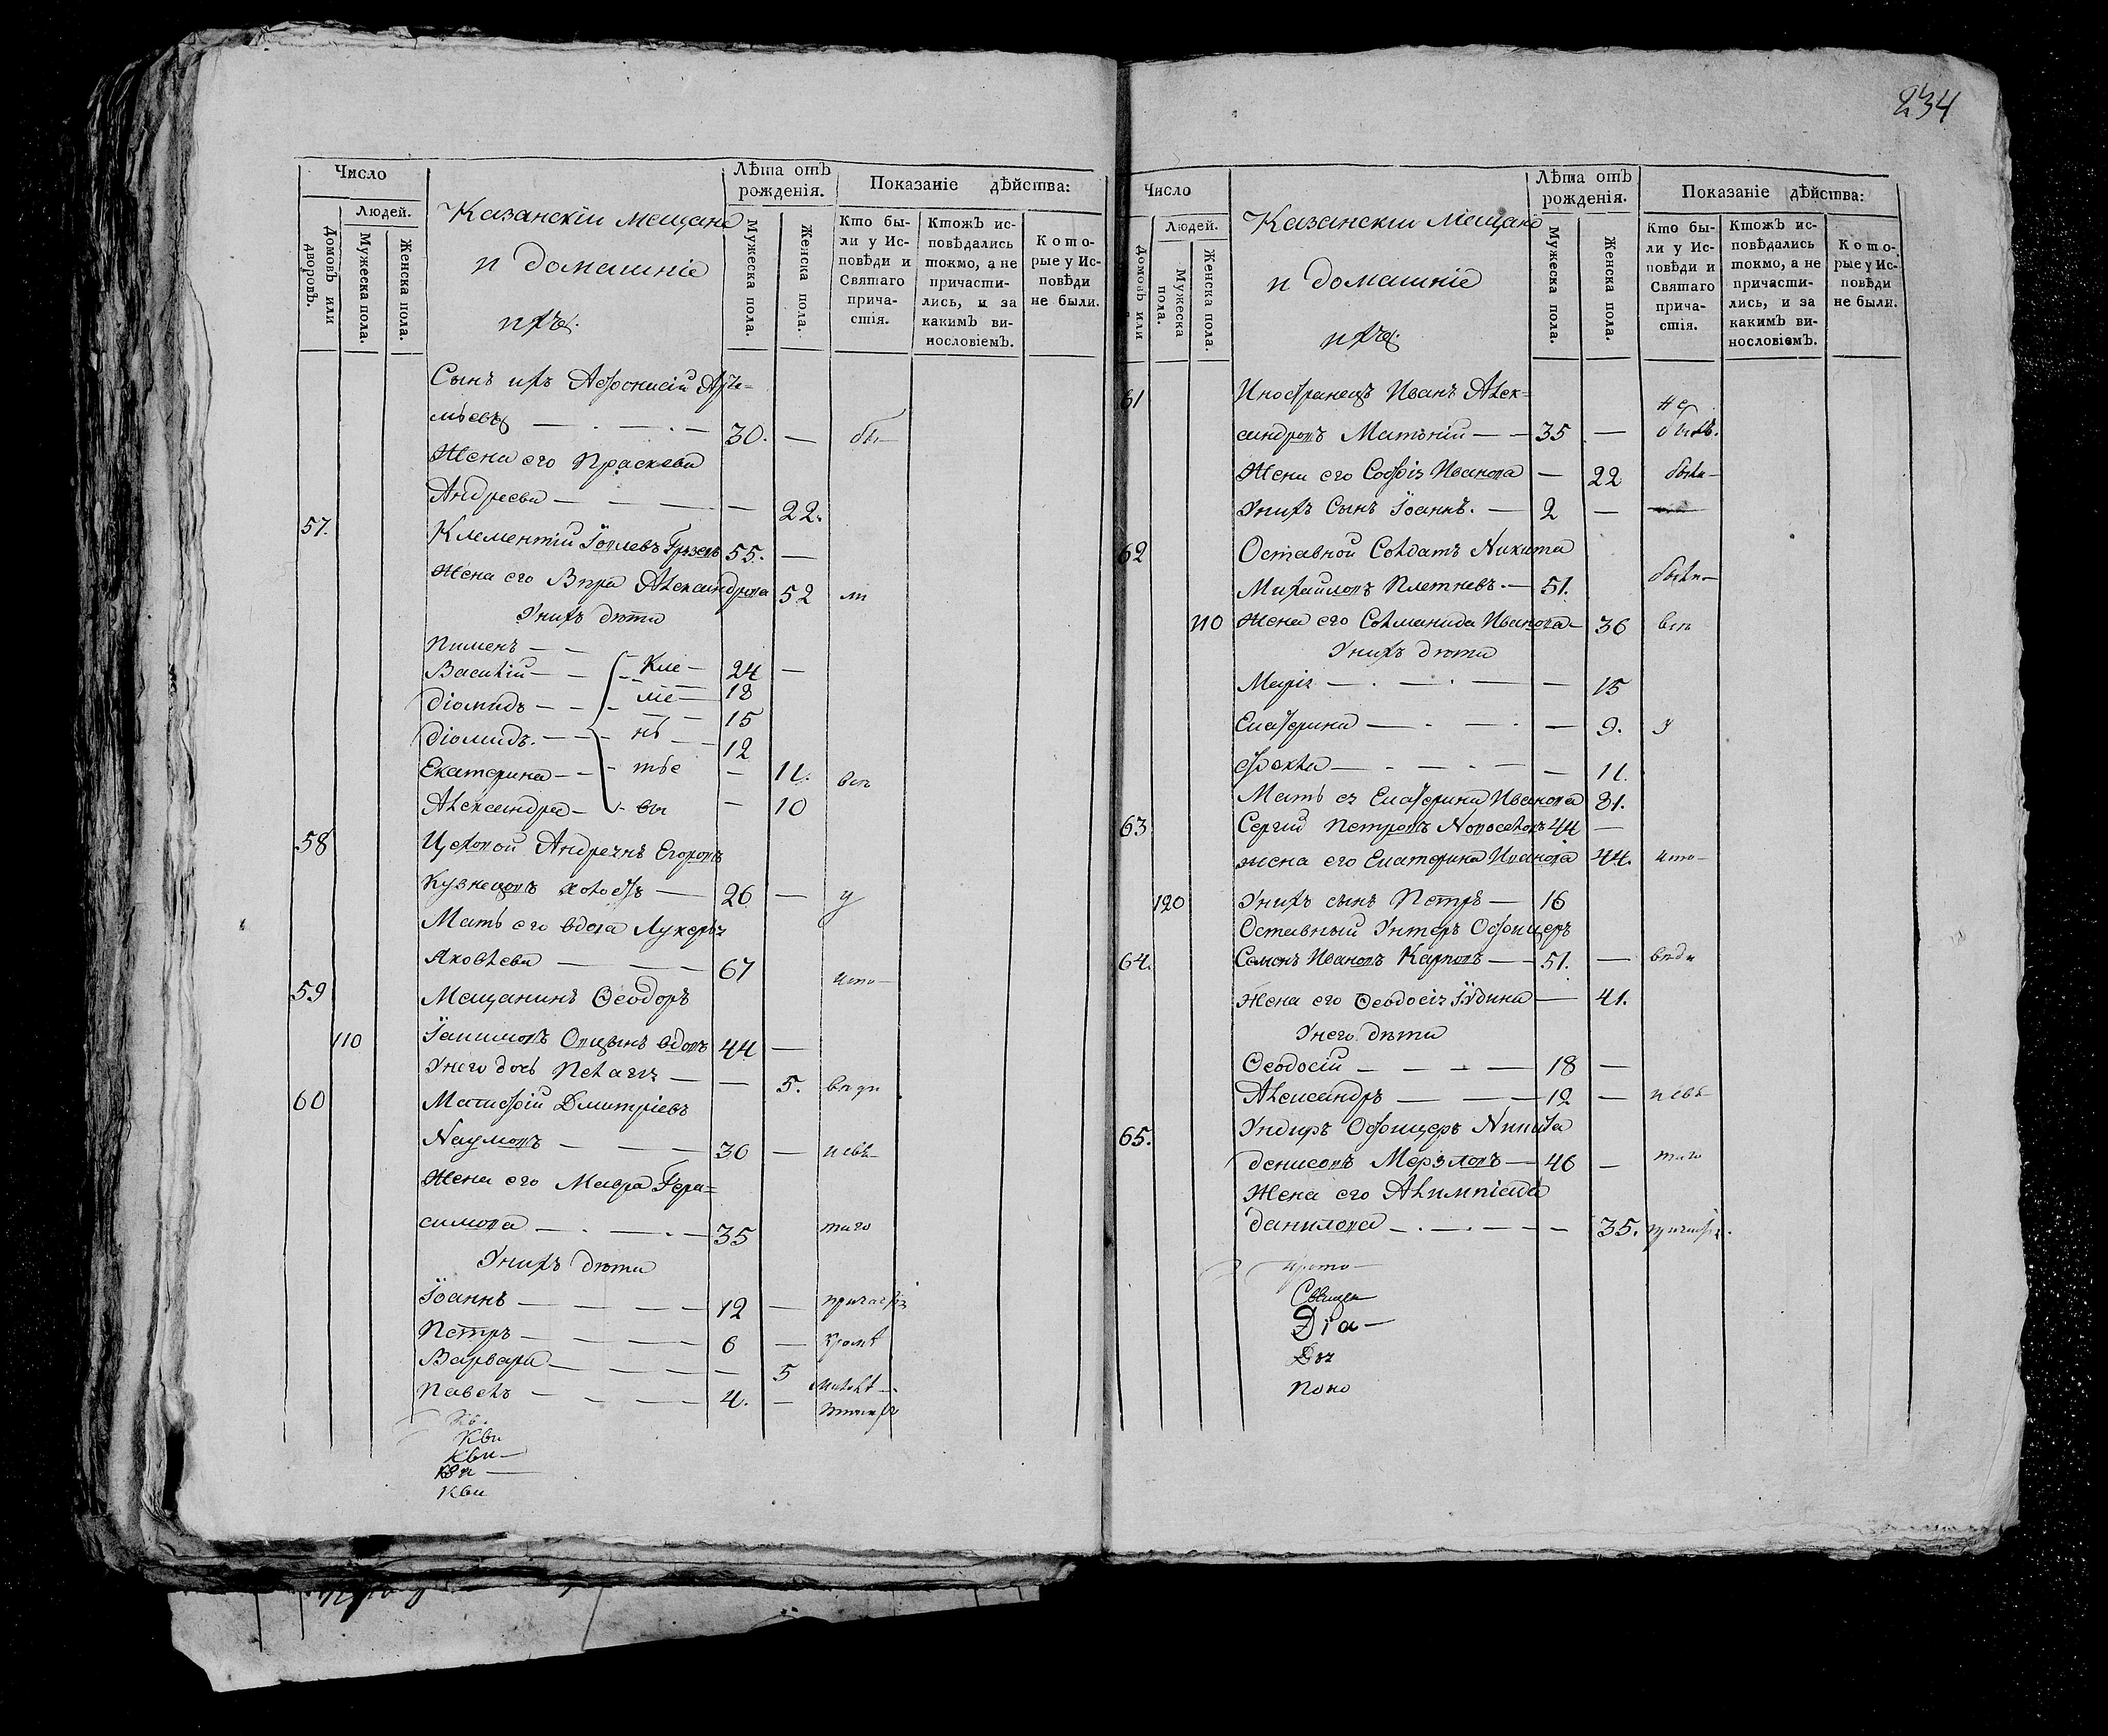 234
Число
Людей.
Домовъ или дворовъ.
Мужеска пола.
Женска пола.
Казанскіи мещане
и домашніе
ихъ.
Лѣта отъ рожденія.
Мужеска пола.
Женска пола.
Показаніе дѣйства:
Кто бы-
ли у Ис-
повѣди и
Святаго
прича-
стія.
Ктожъ ис-
повѣдались
токмо, а не
причасти-
лись, и за
какимъ ви-
нословіемъ.
Кото-
рые у Ис-
повѣди
не были.
Сынъ ихъ Афонисій Арте=
мьевъ 30. — бы—
Жена его Праскева
Андреева — 22.
57. Климентій Іовлевъ 55. —
Жена его Вѣра Александрова 52 ли
Унихъ дѣти
Пименъ — Кле— 24 —
Василій — ме— 18
Діомидъ — 15
Діомидъ. — нь 12
Екатерина — тье — 11. всѣ
Александра — вы — 10
58 Цеховой Андреянъ Егоровъ
Кузнецовъ холостъ — 26 — у
Мать его вдова Лукерья
Яковлева — 67 испо—
59 Мещанинъ Ѳеодоръ
110 вдовъ 44 —
Унего дочь Пелагія — — 5. вѣди
60 Дмитріевъ
Наумовъ — 36 — исвя—
Жена его Мавра Гера=
симова — 35 таго
Унихъ дѣти
Іоаннъ — 12 — причастія
Петръ — 6 — кромѣ
Варвара — — 5 малолѣт—
Павелъ — 4. —
Число
Людей.
Домовъ или
Мужеска пола.
Женска пола.
Казанскіи Мещане
и домашніе
ихъ.
Лѣта отъ рожденія.
Мужеска пола.
Женска пола.
Показаніе дѣйства:
Кто бы-
ли у Ис-
повѣди и
Святаго
прича-
стія.
Ктожъ ис-
повѣдались
токмо, а не
причасти-
лись, и за
какимъ ви-
нословіемъ.
Кото-
рые у Ис-
повѣди
не были.
61 Иностранецъ Иванъ Алек-
сандровъ — 35 — не былъ.
Жена его Софія Иванова — 22 были—
Унихъ Сынъ Іоаннъ. — 2 —
62 Оставной Солдатъ Никита
Михайловъ Плетневъ. — 51. были—
110 Жена его Соломанида Иванова — 36 всѣ
Унихъ дѣти
Марія — — 15
Екатерина — — 9. у
Ѳекла — — 11.
Мать ея Екатерина Иванова 81.
63 Сергій Петровъ Новоселовъ 44 —
жена его Екатерина Иванова 44. испо—
120 Унихъ сынъ Петръ — 16
Оставный Унтеръ Офицеръ
64. Семенъ Ивановъ Карповъ — 51. — вѣди
Жена его Ѳеодосія Іудина — 41.
Унего дѣти
Ѳеодосій — 18 —
Александръ — 12 — исвя—
65. Ундиръ Офицеръ Никита
Денисовъ Мерзловъ — 46 — таго
Жена его Алимпіада
Данилова — — 35. причастія.
прото—
Священ
Діа—
Дья
Поно